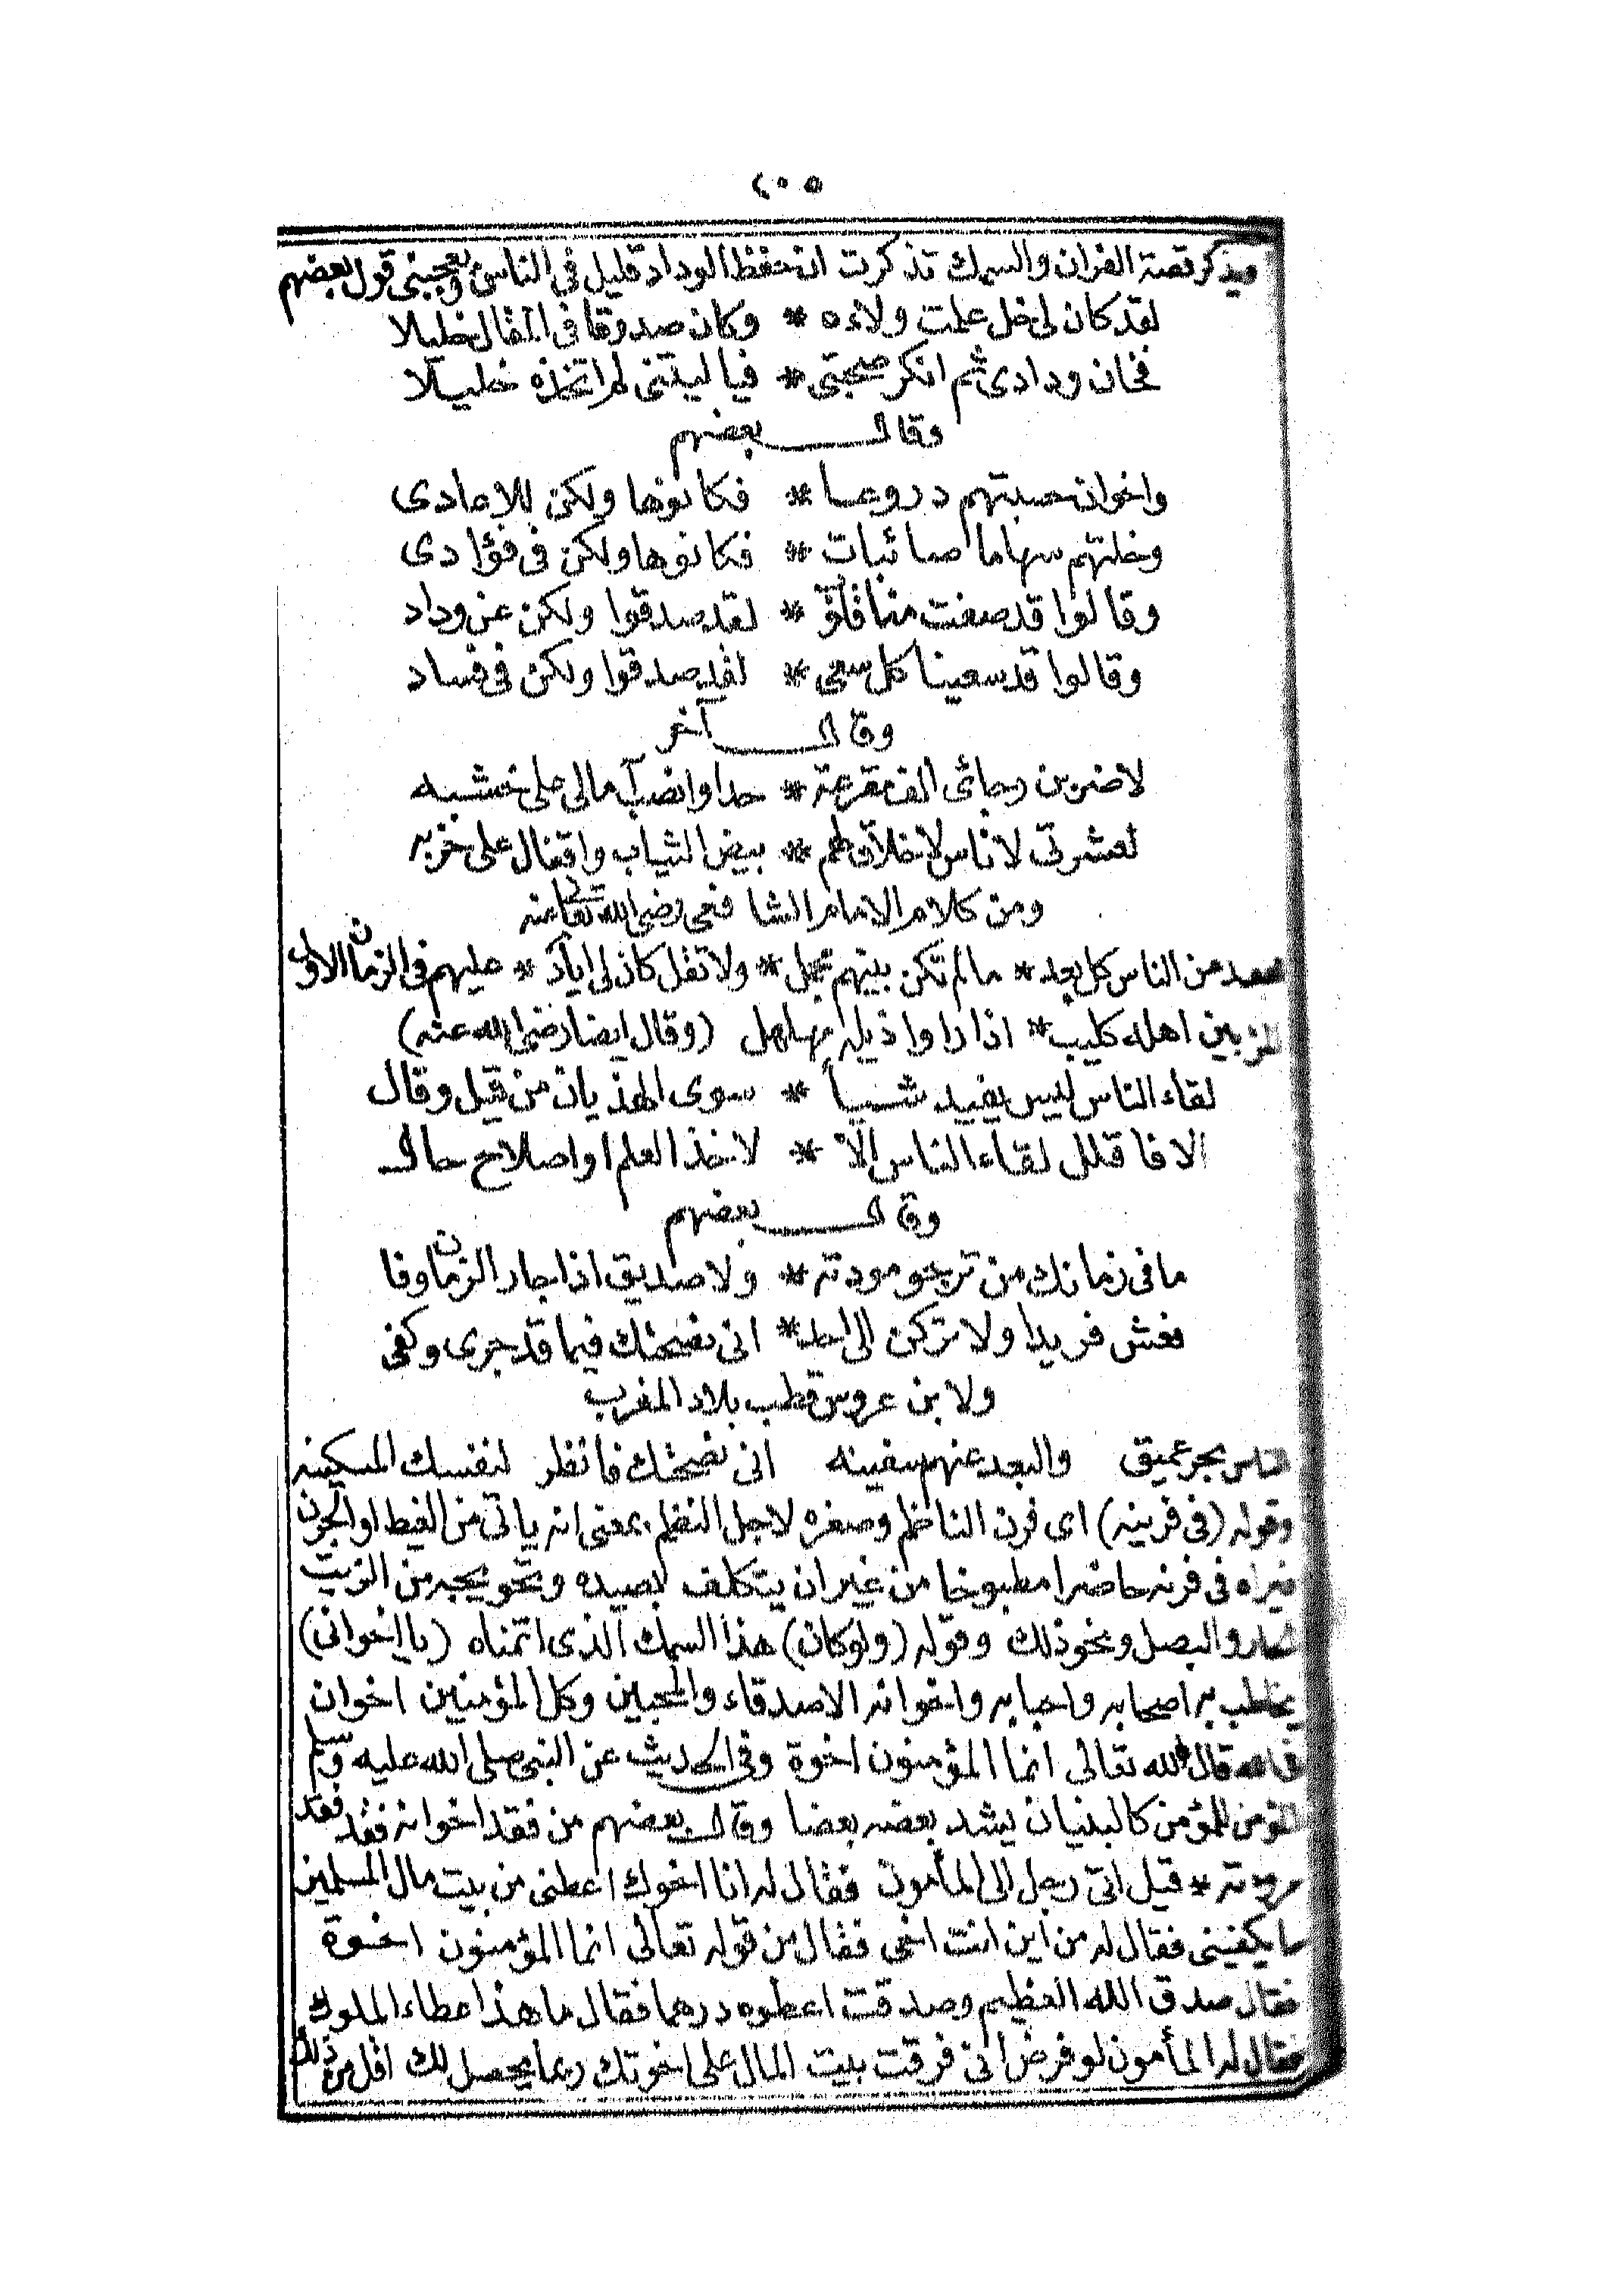 ٢٠٥
وبذكر قصة الفران والسمك تذكرت ان حفظ الوداد قليل فى الناس ويعجبنى قول بعضهم
لقد كان لى خل علمت ولاءه * وكان صدوقا فى المقال خليلا
فخان ودادى ثم انكر صحبتى * فيا ليتنى لم اتخذه خليلا
وقال بعضهم
واخوان حسبتهم دروعا * فكانوها ولكن للاعادى
وخلتهم سهاما صائبات * فكانوها ولكن فى فؤادى
وقالوا قد صفت منا قلوب * لقد صدقوا ولكن عن وداد
وقالوا قد سعينا كل سعى * لقد صدقوا ولكن فى فساد
وقال آخر
لاضربن رجائى الف مقرعة * حدا وانصب آمالى على خشبه
لعشرتى لاناس لا خلاق لهم * بيض الثياب واقفال على خربه
ومن كلام الامام الشافعى رضى الله تعالى عنه
من الناس كل بعد * ما لم تكن بينهم بجل * ولا تقل كان لى اياد * عليهم فى الزمان الاول
بين اهله كليب * اذا راوا ذيله مهلهل (وقال ايضا رضى الله عنه)
لقاء الناس ليس يفيد شيأ * سوى الهذيان من قيل وقال
الا فاقلل لقاء الناس الا * لاخذ العلم او اصلاح حال
وقال بعضهم
ما فى زمانك من ترجو مودته * ولا صديق اذا جار الزمان وفا
فعش فريدا ولا تركن الى احد * انى نصحتك فيما قد جرى وكفى
ولابن عروس قطب بلاد المغرب
الناس بحر عميق والبعد عنهم سفينه انى نصحتك فانظر لنفسك المسكينه
وقوله (فى فرينه) اى فرن الناظم وصغره لاجل النظم بمعنى انه ياتى من الغيط او الجرن
فيراه فى فرنه حاضرا مطبوخا من غير ان يتكلف لصيده ونحو يجبه من الزيت
والبصل ونحو ذلك وقوله (ولو كان) هذا السمك الذى اتمناه (يا اخوانى)
يخاطب به اصحابه واحبابه واخوانه الاصدقاء والمحبين وكل المؤمنين اخوان
قال الله تعالى انما المؤمنون اخوة وفى الحديث عن النبى صلى الله عليه وسلم
المؤمن للمؤمن كالبنيان يشد بعضه بعضا وقال بعضهم من فقد اخوانه فقد فقد
مروءته * قيل اتى رجل الى المأمون فقال له انا اخوك اعطنى من بيت مال المسلمين
ما يكفينى فقال له من اين انت اخى فقال من قوله تعالى انما المؤمنون اخوة
فقال صدق الله العظيم وصدقت اعطوه درهما فقال ما هذا عطاء الملوك
فقال له المأمون لو فرض انى فرقت بيت المال على اخوتك ربما يحصل لك اقل من ذلك